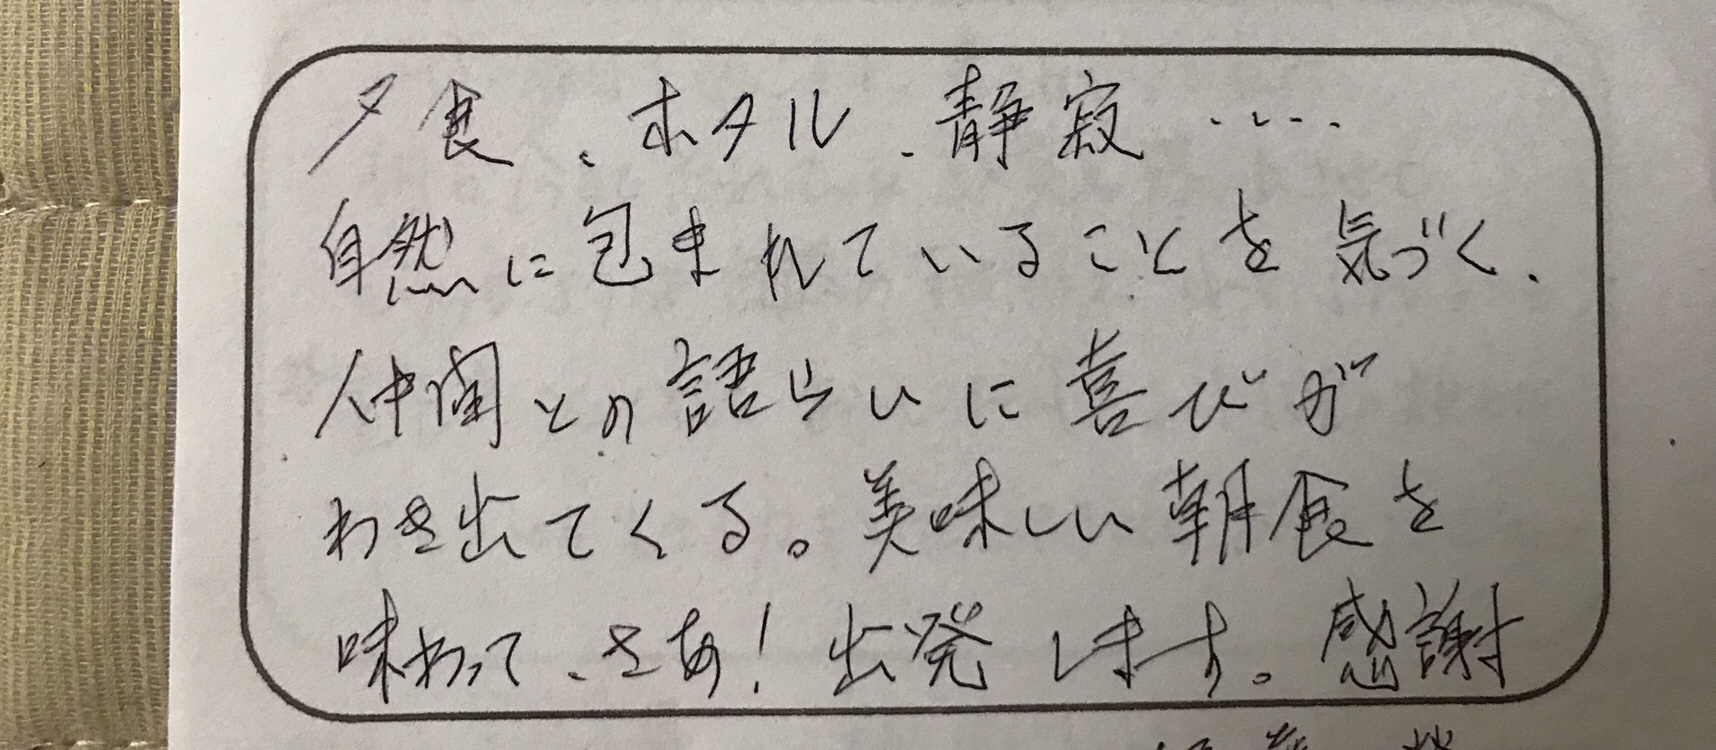 夕食、ホタル、静寂‥‥
自然に包まれていることを気づく、
仲間との語らいに喜びが
わき出てくる。美味しい朝食を
味わって、さあ!出発します。感謝